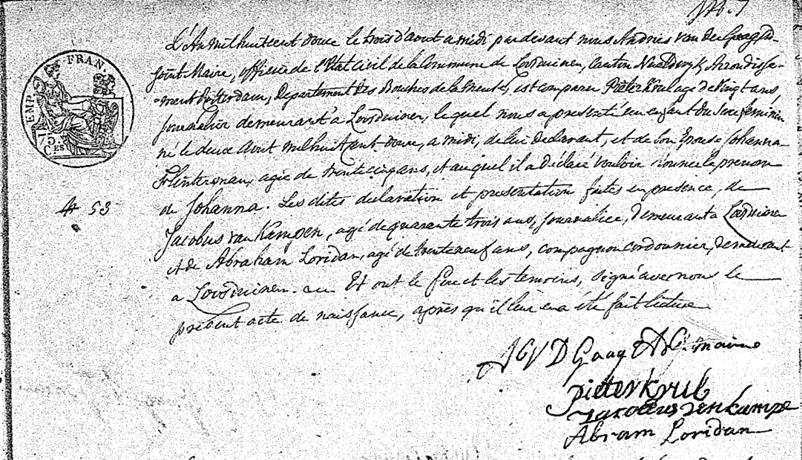 L'An mil huit cent douze le trois d'Aout a midi par devant nous Andries van der Gaag ad-
joint Maire, officier de l'Etat Civil de la Commune de Loosduinen, Canton Naaldwyk, Arrondisse-
ment Rotterdam, Departement des Bouches de la Meuse, est comparu Pieter Krul agé de vingt ans,
journalier demeurant à Loosduinen, lequel nous a presenté un enfant du Sexe feminin
né le deux Aout mil huit cent douze, a midi, de lui declarant, et de Son Epouse Johanna
agée de ans, et auquel il a declaré vouloir donner le prenom
de Johanna. Les dites declaration et presentation faites en presence, de
Jacobus van Kampen, agé de quarante trois ans, journalier, demeurant a Loosduinen
et de Abraham Loridan, agé de trente neuf ans, compagnon cordonnier, demeurant
a Loosduinen. Et ont le pere et les temoins, signé avec nous le
présent acte de naissance, après qu'il leur en a été fait lecture
N. 53
EMP. FRAN
A V D Gaag Adt maire
Pieter Krul
Jacobus van Kampe
Abram Loridan